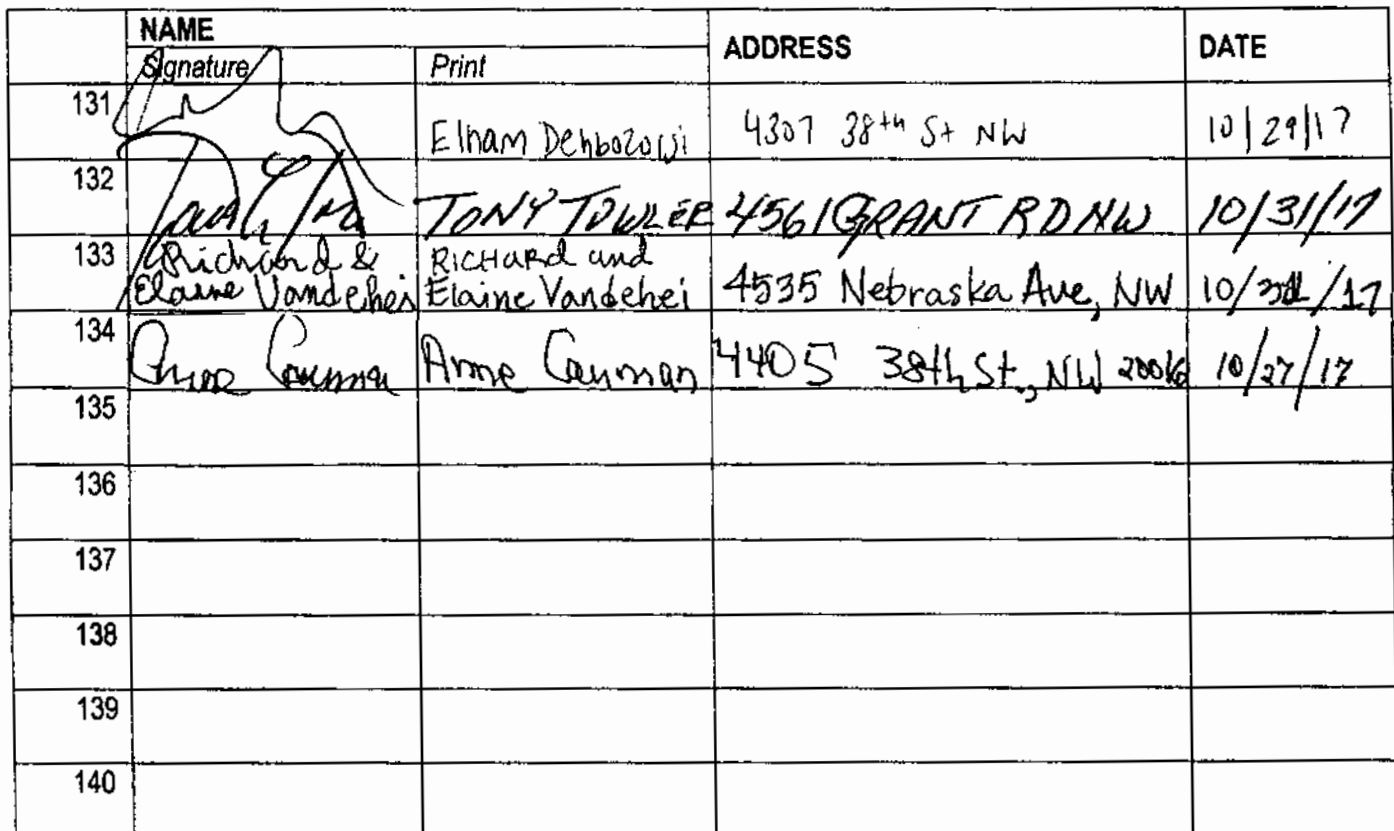 NAME ADDRESS DATE
Signature Print
131 Elham Dehbozorgi 4307 38th St NW 10/29/17
132 TONY TOWLER 4561 GRANT RD NW 10/31/17
133 Richard & RICHARD and
Elaine Vandehei Elaine Vandehei 4535 Nebraska Ave, NW 10/31/17
134 Anne Cauman Anne Cauman 4405 38th St., NW 20016 10/27/17
135
136
137
138
139
140